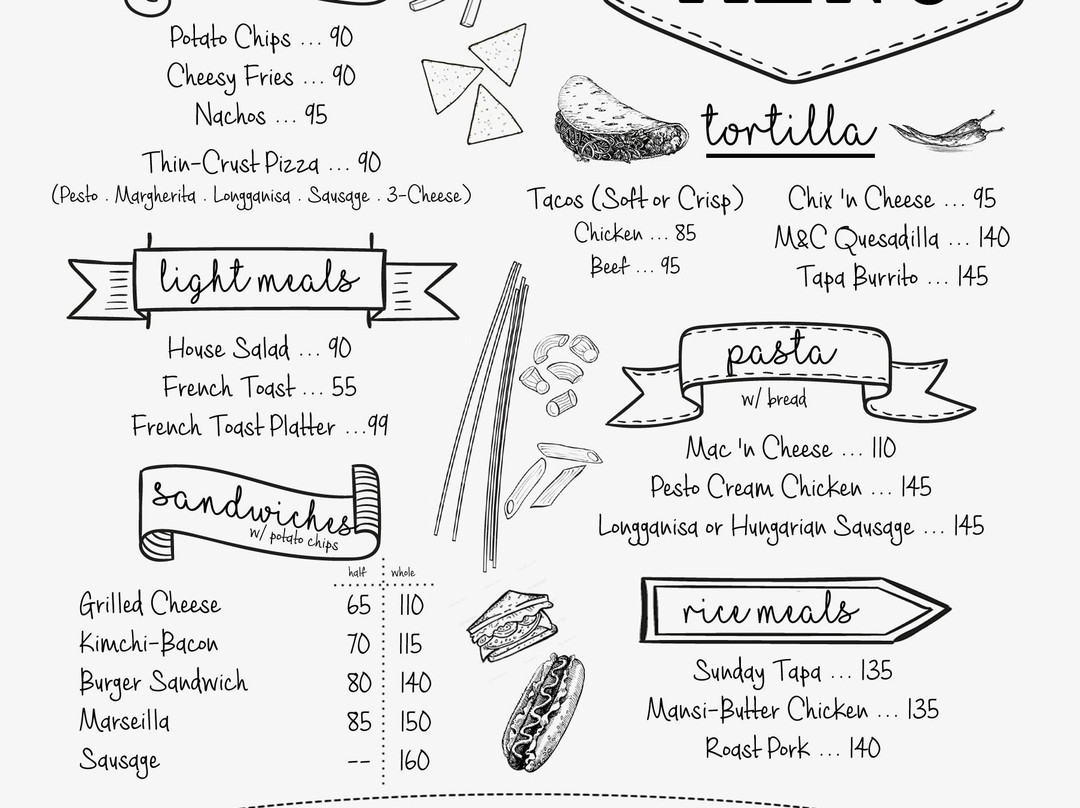 Potato Chips ... 90
Cheesy Fries ... 90
Nachos ... 95
Thin-Crust Pizza ... 90
(Pesto . Margherita . Longganisa . Sausage . 3-Cheese)
light meals
House Salad ... 90
French Toast ... 55
French Toast Platter ...99
sandwiches
w/ potato chips
half whole
Grilled Cheese 65 110
Kimchi-Bacon 70 115
Burger Sandwich 80 140
Marseilla 85 150
Sausage -- 160
tortilla
Tacos (Soft or Crisp)
Chicken ... 85
Beef ... 95
Chix 'n Cheese ... 95
M&C Quesadilla ... 140
Tapa Burrito ... 145
pasta
w/ bread
Mac 'n Cheese ... 110
Pesto Cream Chicken ... 145
Longganisa or Hungarian Sausage ... 145
rice meals
Sunday Tapa ... 135
Mansi-Butter Chicken ... 135
Roast Pork ... 140